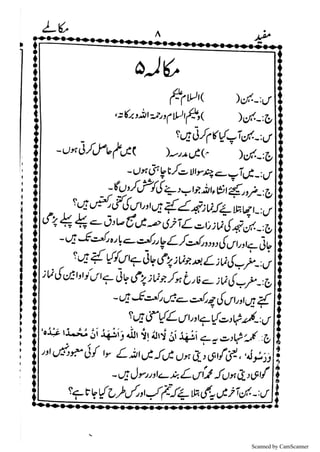 مفید ۸ مکالمے
مکالمہ ۵
س:۔ بہن ( ) السلام علیکم
ج:۔ بہن ( ) وعلیکم السلام ورحمۃ اللہ وبرکاتہ،
س:۔ بہن آپ کیا کام کرتی ہیں؟
ج:۔ بہن ( ) میں مدرسہ ( ) میں علم حاصل کرتی ہوں۔
س:۔ میں آپ سے چند سوالات کرنا چاہتی ہوں۔
ج:۔ ضرور کیجئے انشاءاللہ جواب دینے کی کوشش کروں گا۔
س:۔ اچھا بتلائیے کہ نماز تہجد کسے کہتے ہیں اور اس کی کتنی رکعتیں ہیں؟
ج:۔ بہن تہجد کی نماز رات کے آخری حصہ میں صبح صادق سے پہلے پہلے پڑھی
جاتی ہے اور اس کی دو دو رکعت کر کے چار رکعت سے بارہ رکعت تک ہیں۔
س:۔ مغرب کی نماز کے بعد جو نماز پڑھی جاتی ہے اس کو کیا کہتے ہیں؟
ج:۔ مغرب کی نماز سے فارغ ہو کر جو نماز پڑھی جاتی ہے اس کو اوابین کی نماز
کہتے ہیں اور اس کی چھ رکعت سے بیس رکعت تک ہیں۔
س:۔ کلمہ شہادت کیا ہے اور اس کے کیا معنی ہیں؟
ج:۔ کلمہ شہادت یہ ہے اَشْهَدُ اَنْ لَّا اِلٰهَ اِلَّا اللّٰه وَاَشْهَدُ اَنَّ مُحَمَّدًا عَبْدُه
وَرَسُولُه، یعنی گواہی دیتی ہوں میں کہ میں اللہ کے سوا کوئی معبود نہیں اور
گواہی دیتی ہوں کہ محمدؐ اس کے بندے اور رسول ہیں۔
س:۔ بہن آخر میں یہ بھی بتلائیے کہ تیمم کب اور کس طرح کیا جاتا ہے؟
Scanned by CamScanner